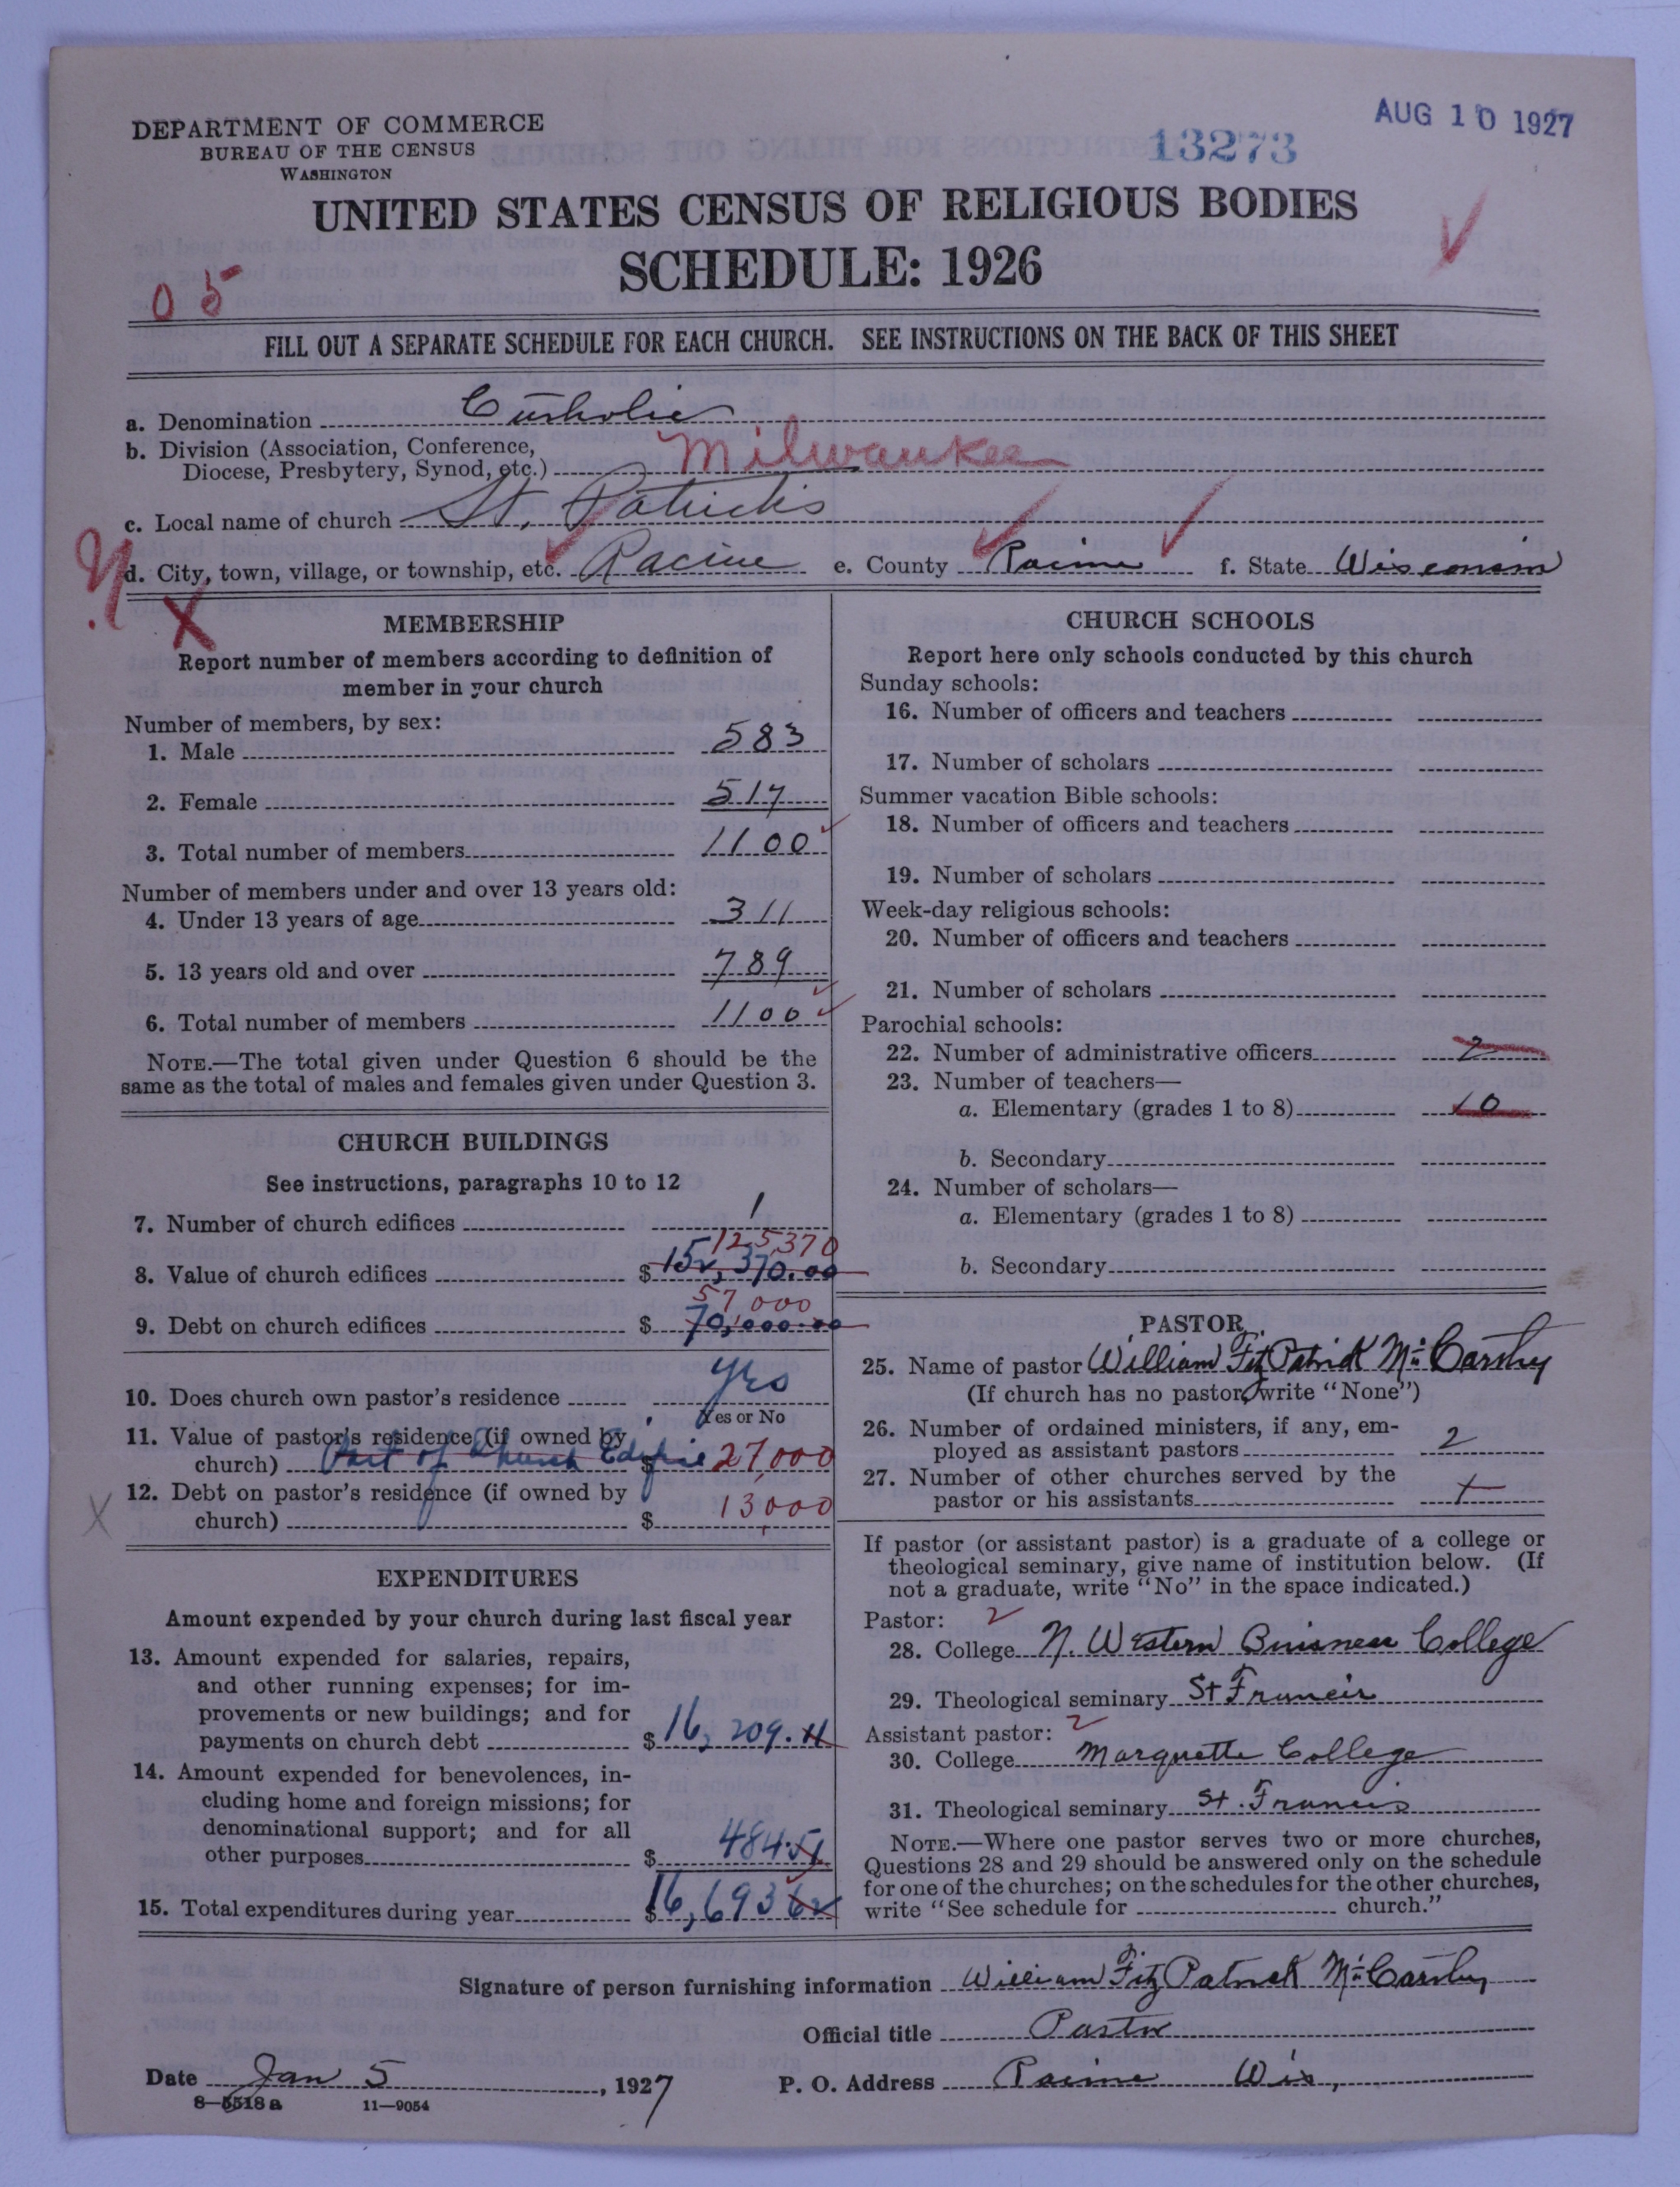 DEPARTMENT OF COMMERCE
BUREAU OF THE CENSUS
WASHINGTON
13273
AUG 10 1927
UNITED STATES CENSUS OF RELIGIOUS BODIES
SCHEDULE: 1926
05
FILL OUT A SEPARATE SCHEDULE FOR EACH CHURCH. SEE INSTRUCTIONS ON THE BACK OF THIS SHEET
a. Denomination Catholic
b. Division (Association, Conference,
Diocese, Presbytery, Synod, etc.) Milwaukee
c. Local name of church St. Patrick's
d. City, town, village, or township, etc. Racine e. County Racine f. State Wisconsin
MEMBERSHIP
Report number of members according to definition of
member in your church
Number of members, by sex:
1. Male 583
2. Female 517
3. Total number of members 1100
Number of members under and over 13 years old:
4. Under 13 years of age 311
5. 13 years old and over 789
6. Total number of members 1100
NOTE.—The total given under Question 6 should be the
same as the total of males and females given under Question 3.
CHURCH BUILDINGS
See instructions, paragraphs 10 to 12
7. Number of church edifices 1
125,370
8. Value of church edifices $ 152,370.00
57,000
9. Debt on church edifices $ 70,000.00
10. Does church own pastor's residence yes
Yes or No
11. Value of pastor's residence (if owned by
church) Part of Church Edifice $ 27,000
12. Debt on pastor's residence (if owned by
church) $ 13,000
EXPENDITURES
Amount expended by your church during last fiscal year
13. Amount expended for salaries, repairs,
and other running expenses; for im-
provements or new buildings; and for
payments on church debt $ 16,209.11
14. Amount expended for benevolences, in-
cluding home and foreign missions; for
denominational support; and for all
other purposes $ 484.51
15. Total expenditures during year $ 16,693 62
CHURCH SCHOOLS
Report here only schools conducted by this church
Sunday schools:
16. Number of officers and teachers
17. Number of scholars
Summer vacation Bible schools:
18. Number of officers and teachers
19. Number of scholars
Week-day religious schools:
20. Number of officers and teachers
21. Number of scholars
Parochial schools:
22. Number of administrative officers 2
23. Number of teachers—
a. Elementary (grades 1 to 8) 10
b. Secondary
24. Number of scholars—
a. Elementary (grades 1 to 8)
b. Secondary
PASTOR
25. Name of pastor William FitzPatrick McCarthy
(If church has no pastor, write "None")
26. Number of ordained ministers, if any, em-
ployed as assistant pastors 2
27. Number of other churches served by the
pastor or his assistants
If pastor (or assistant pastor) is a graduate of a college or
theological seminary, give name of institution below. (If
not a graduate, write "No" in the space indicated.)
Pastor: 2
28. College N. Western Buisness College
29. Theological seminary St Francis
Assistant pastor: 2
30. College Marquette College
31. Theological seminary St. Francis
NOTE.—Where one pastor serves two or more churches,
Questions 28 and 29 should be answered only on the schedule
for one of the churches; on the schedules for the other churches,
write "See schedule for church."
Signature of person furnishing information William FitzPatrick McCarthy
Official title Pastor
Date Jan 5, 1927 P. O. Address Racine Wis,
8—5518a 11—9054